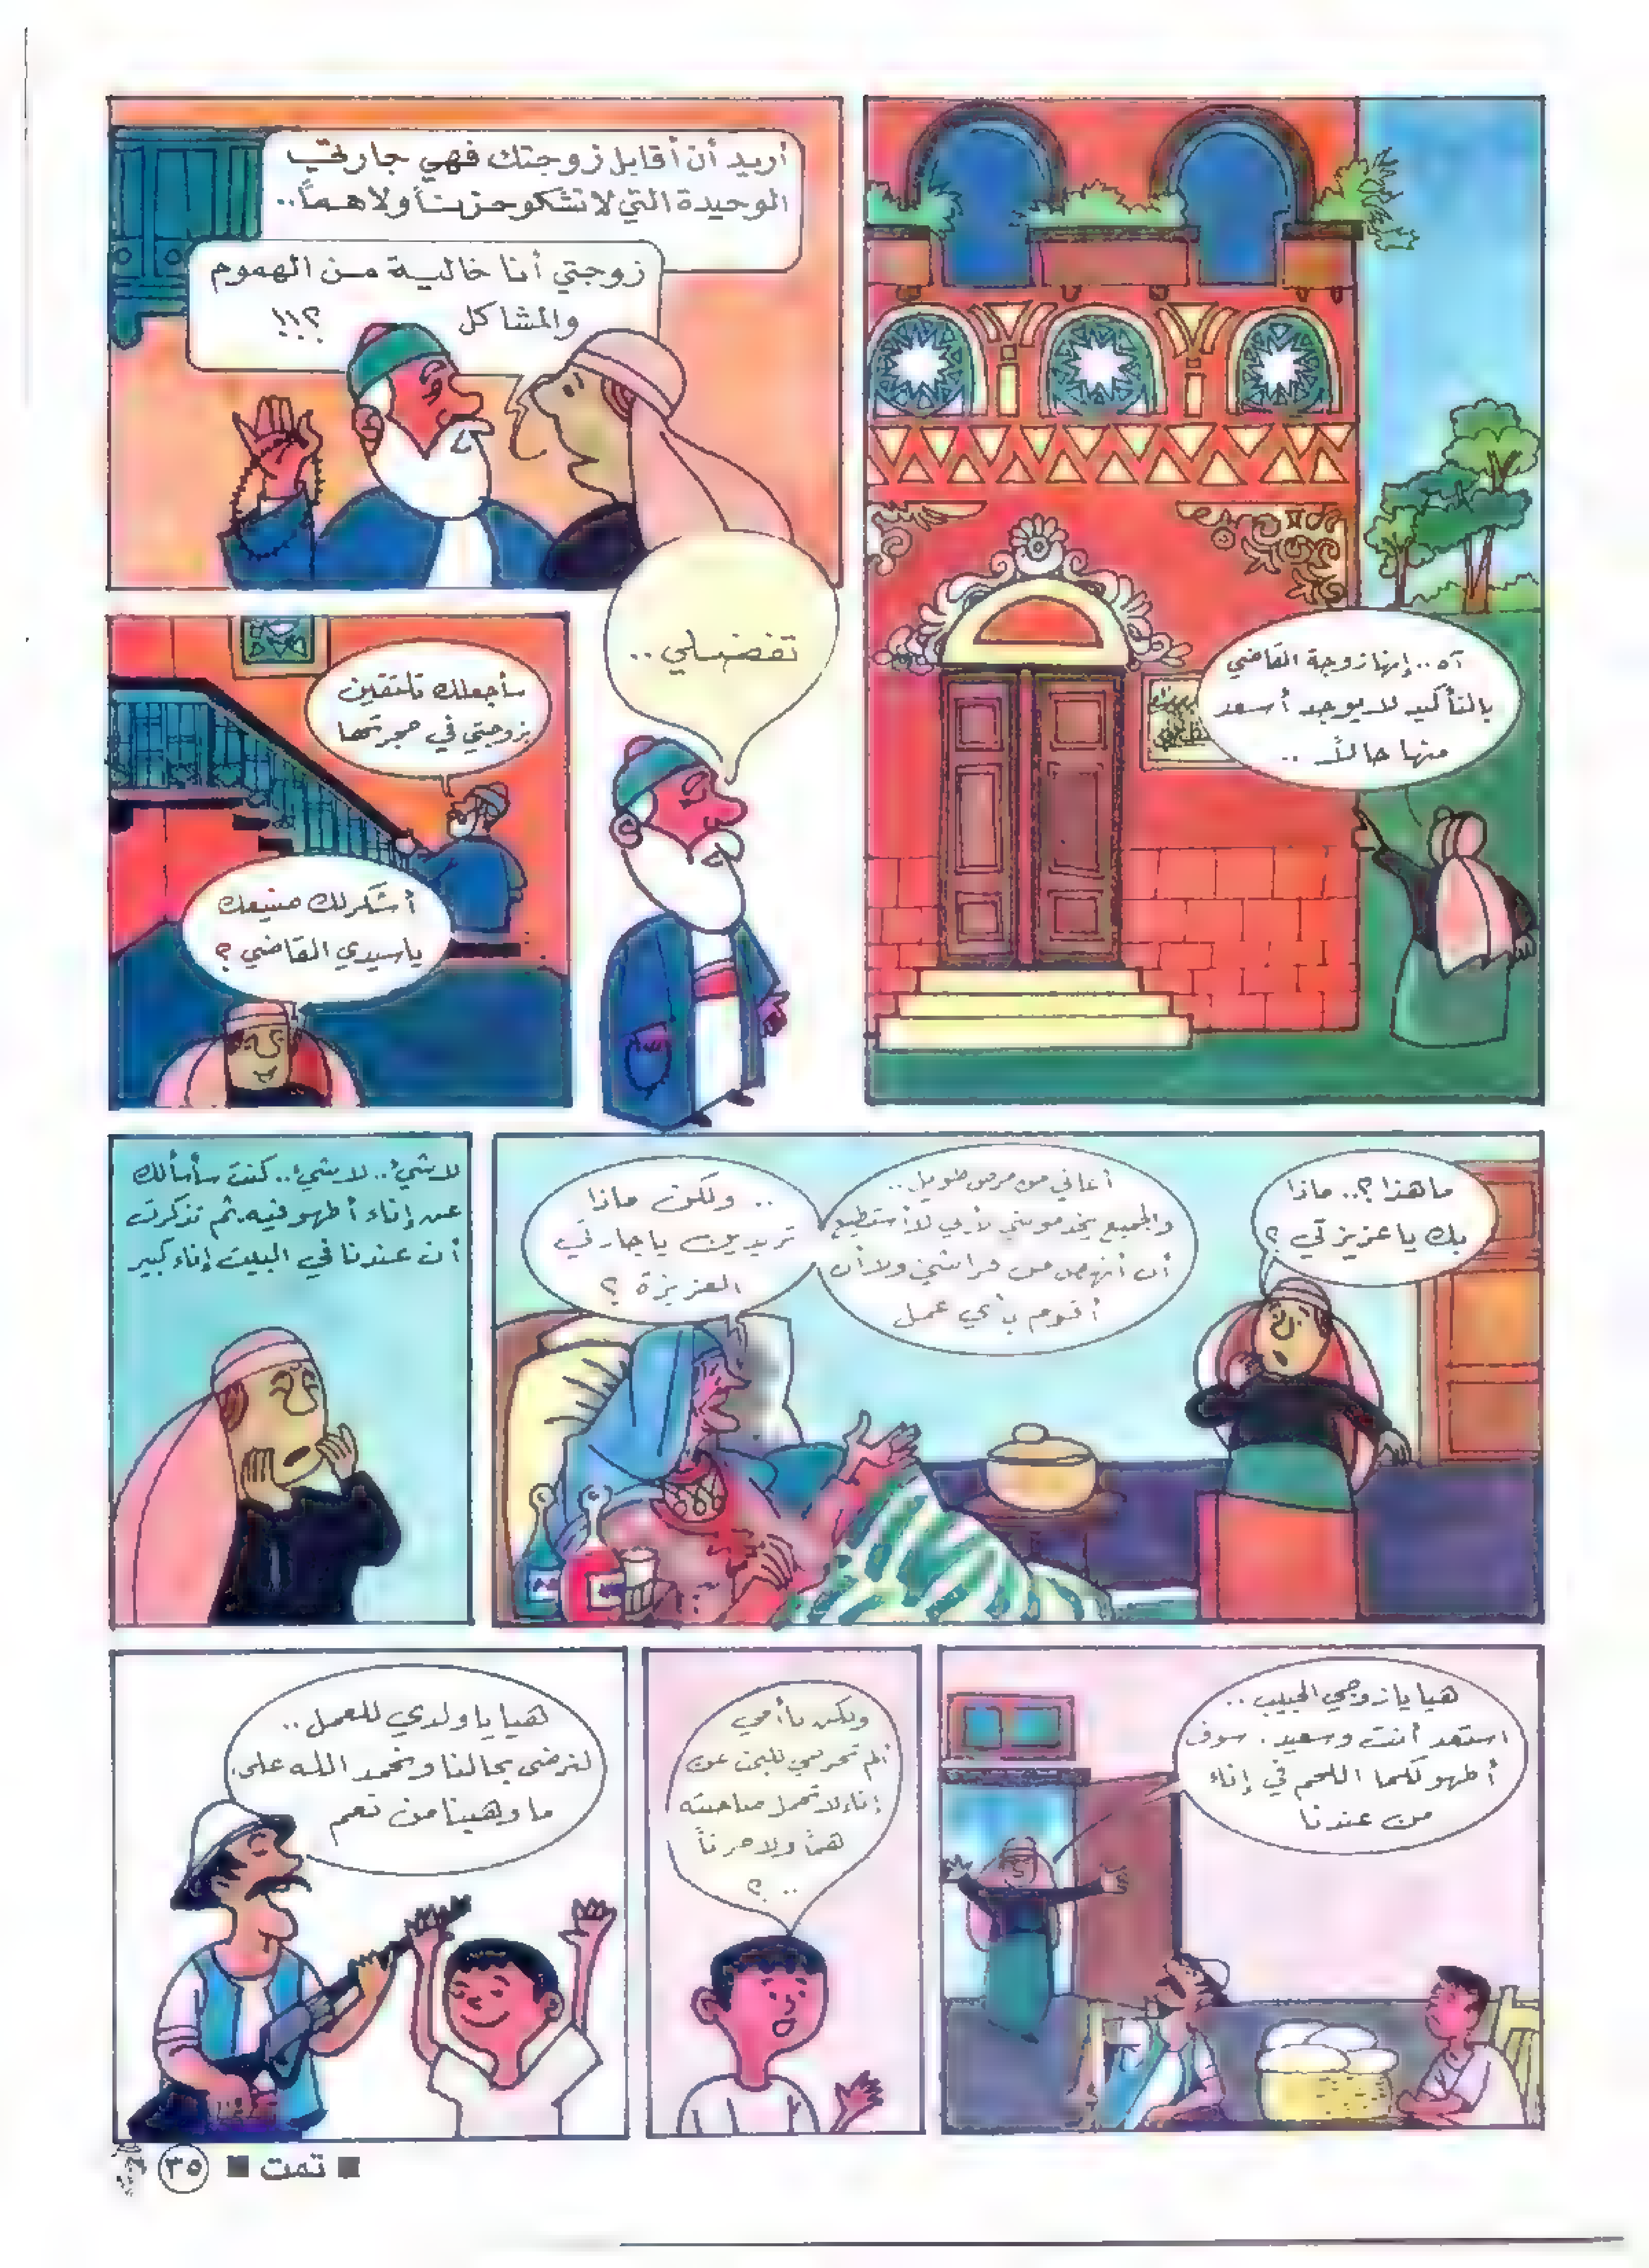 آه.. إنها زوجة القاضي
بالتأكيد لا يوجد أسعد
منها حالاً ..
أريد أن أقابل زوجتك فهي جارتي
الوحيدة التي لا تشكو حزناً ولا هماً..
زوجتي أنا خالية من الهموم
والمشاكل ؟!!
تفضلي ..
سأجعلك تلتقين
بزوجتي في حجرتها
أشكر لك صنيعك
يا سيدي القاضي ؟
ما هذا ؟.. ماذا
بك يا عزيزتي ؟
أعاني من مرض طويل ..
والجميع يخدمونني لأني لا أستطيع
أن أنهض من فراشي ولا أن
أقوم بأي عمل
.. ولكن ماذا
تريدين يا جارتي
العزيزة ؟
لا شيء.. لا شيء.. كنت سأسألك
عن إناء أطهو فيه، ثم تذكرت
أن عندنا في البيت إناء كبير
هيا يا زوجي الحبيب ..
استعد أنت وسعيد. سوف
أطهو لكما اللحم في إناء
من عندنا
ولكن يا أمي
ألم تخرجي للبحث عن
إناء لا تحمل صاحبته
هماً ولا حزناً
.. ؟
هيا يا ولدي للعمل ..
لنرضى بحالنا ونحمد الله على
ما وهبنا من نعم
■ تمت ■ ٣٥